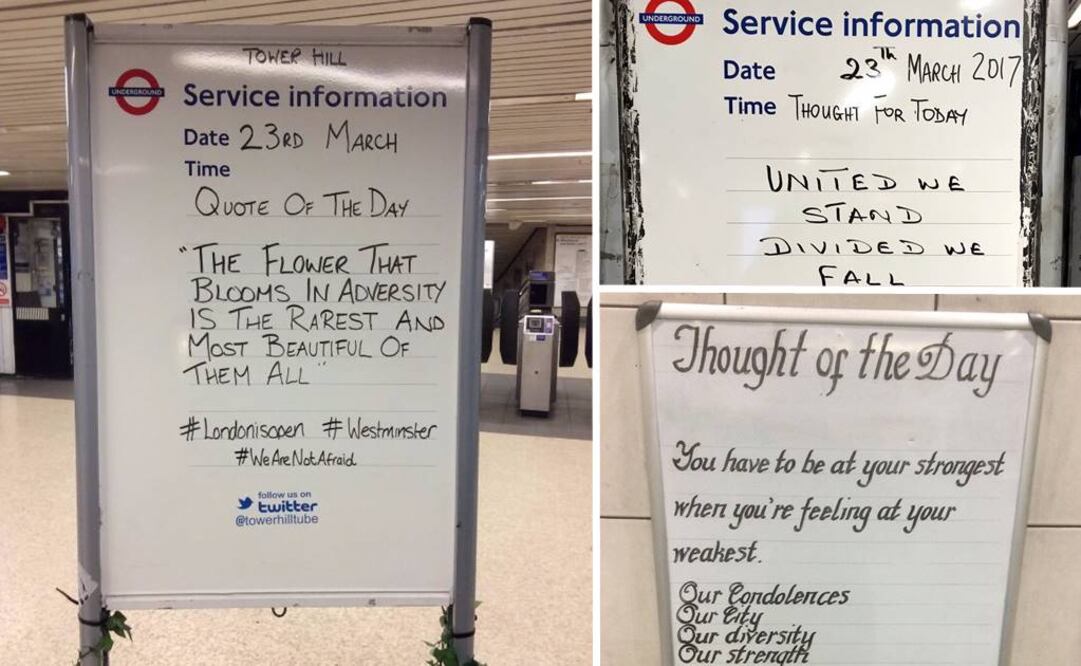 TOWER HILL
UNDERGROUND
Service information
Date 23RD MARCH
Time
QUOTE OF THE DAY
"THE FLOWER THAT
BLOOMS IN ADVERSITY
IS THE RAREST AND
MOST BEAUTIFUL OF
THEM ALL"
#Londonisopen #Westminster
#WeAreNotAfraid
follow us on
twitter
@towerhilltube
UNDERGROUND
Service information
Date 23th MARCH 2017
Time THOUGHT FOR TODAY
UNITED WE
STAND
DIVIDED WE
FALL
Thought of the Day
You have to be at your strongest
when you're feeling at your
weakest.
Our Condolences
Our City
Our diversity
Our strength